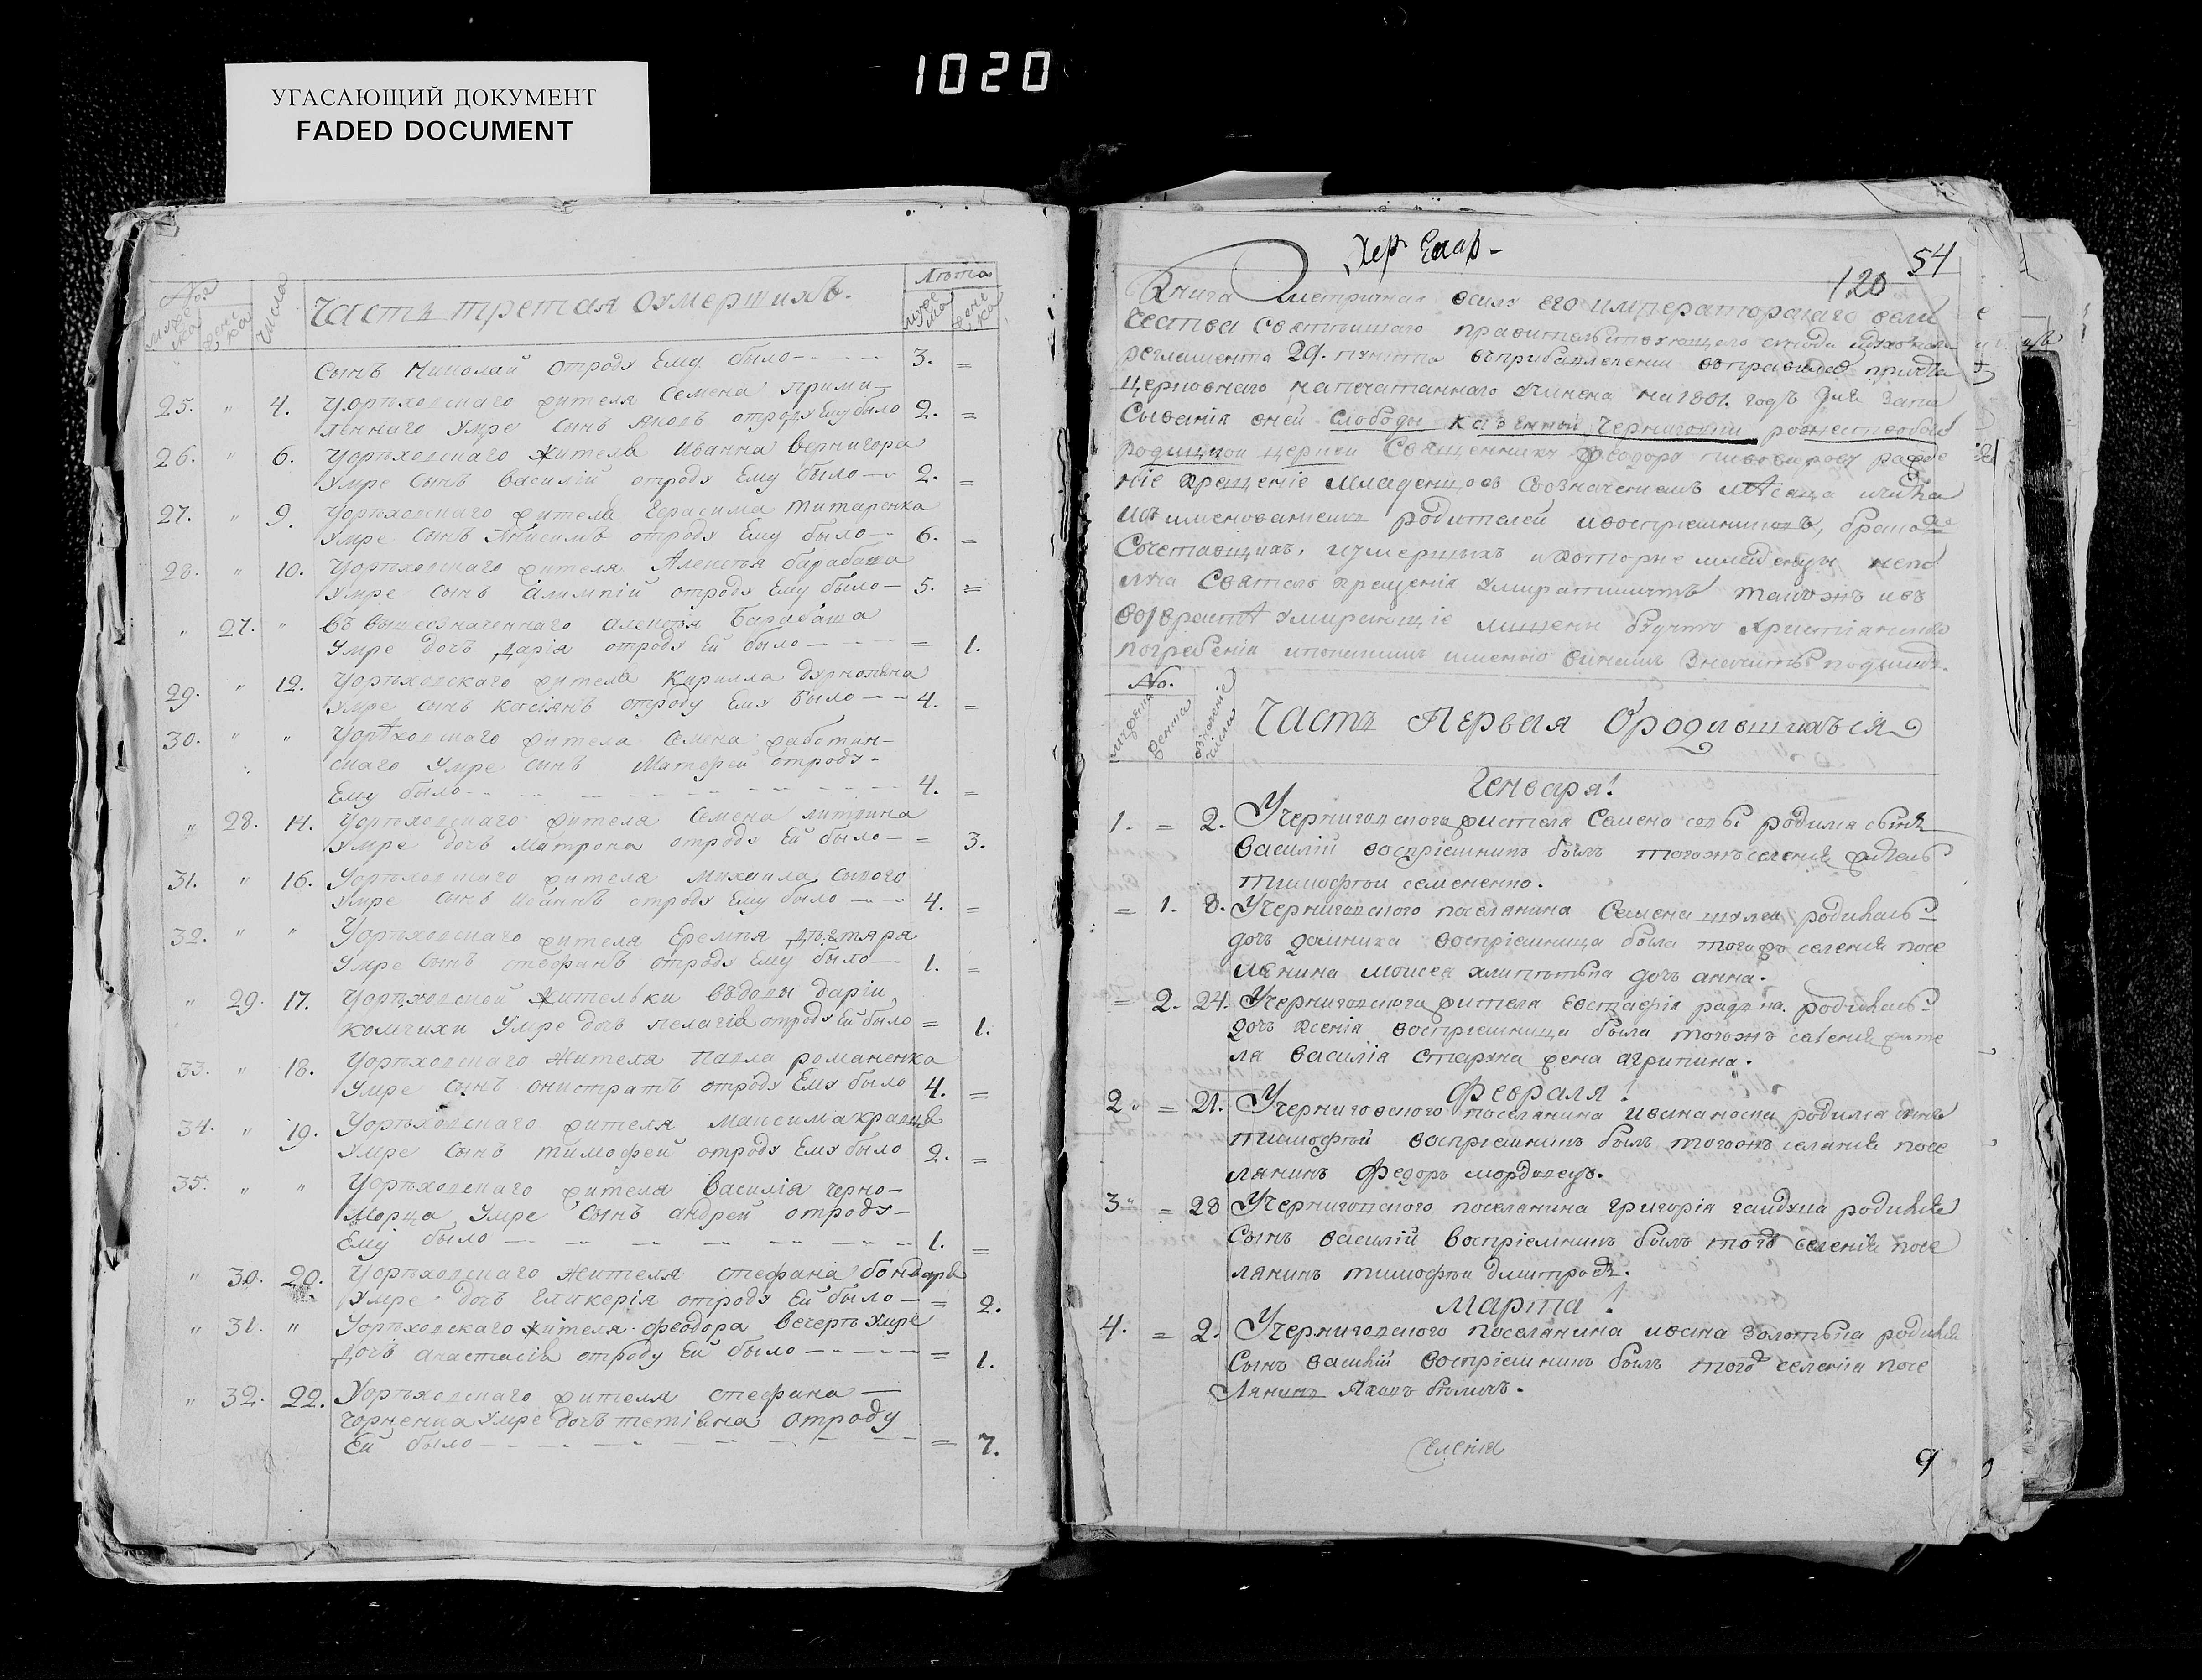 1020
УГАСАЮЩИЙ ДОКУМЕНТ
FADED DOCUMENT
№.
муже
ска
женс
ка
числа
Часть третая оумершихъ.
Лѣта
муже
ска
женс
ка
Сынъ Николай отроду Ему было 3. =
25. " 4. Уорѣховскаго жителя Семена прими-
Умре Сынъ Яковъ отроду Ему было 2. =
26. " 6. Уорѣховскаго жителя Иванна Вернигора
Умре Сынъ Василій отроду Ему было 2. =
27. " 9. Уорѣховскаго жителя Герасима титаренка
Умре Сынъ Анисимъ отроду Ему было 6. =
28. " 10. Уорѣховскаго жителя Алексѣя барабаша
Умре Сынъ Алимпій отроду Ему было 5. =
" 27. " въ вышеозначеннаго алексѣя Барабаша
Умре дочь Дарія отроду Ей было = 1.
29. " 12. Уорѣховскаго жителя Кирилла
Умре Сынъ Касіянъ отроду Ему было 4. =
30. " " Уорѣховскаго жителя Семена работин-
скаго Умре Сынъ Матфей отроду-
Ему было 4. =
" 28. 14. Уорѣховскаго жителя Семена литвина
Умре дочь Матрона отроду Ей было = 3.
31. " 16. Уорѣховскаго жителя Михаила
Умре Сынъ Иваннъ отроду Ему было 4. =
32. " " Уорѣховскаго жителя Еремѣя Дѣгтяря
Умре Сынъ стефанъ отроду Ему было 1. =
" 29. 17. Уорѣховской жительки въдовы Даріи
Умре дочь пелагія отроду Ей было = 1.
33. " 18. Уорѣховскаго жителя Павла романенка
Умре Сынъ онистратъ отроду Ему было 4. =
34. " 19. Уорѣховскаго жителя Максима кравца
Умре Сынъ тимофей отроду Ему было 2. =
35. " " Уорѣховскаго жителя Василія черно-
Морца Умре Сынъ андрей отроду-
Ему было 1. =
" 30. 20. Уорѣховскаго жителя стефана бондаря
Умре дочь гликерія отроду Ей было = 2.
" 31. " Уорѣховскаго жителя феодора вечеръ Умре
Дочь анастасія отроду Ей было = 1.
" 32. 22. Уорѣховскаго жителя стефана
Умре дочъ отроду
Ей было = 7.
Хер. Епар-
54
120
Книга метричная всилу его императорскаго вели
чества святѣйшаго правительствующаго синода
регламента 29. пункта въприбавленіи оправилахъ причта
церковнаго напечатаннаго на 1801. годъ для запи
сыванія вней слободы казенной Черниговки рожество
родицкой церкви Священнику феодору
ніе крещеніе Младенцовъ созначеніемъ мѣсяца ичисла
исъ именованіемъ родителей ивоспріемниковъ, брако
Сочетавшихъ, иумершихъ икоторые младенцы непо
луча Святого крещенія такожъ ивъ
возрастѣ умирающіе лишены будутъ христіанскаго
погребенія ипокакимъ именно винамъ значитъ подъсимъ.
№.
мужеска
женска
числа
Часть Первая Ородившихъсія
Генваря!
1. = 2. Учерниговского жителя Семена родился сынъ
Василій воспріемникъ былъ тогожъ селенія житель
тимофѣй семененко.
= 1. 8. Учерниговского поселянина Семена родилась
дочь домника воспріемница была тогожъ селенія посе
лянина моисея дочь анна.
= 2. 24. Учерниговского жителя евстафія родилась
дочь ксенія воспріемница была тогожъ селенія жите
ля василія старуна жена агрипина.
Февраля!
2. = 21. Учерниговского поселянина ивана носка родился сынъ
тимофѣй воспріемникъ былъ тогожъ селенія посе
лянинъ Федоръ мордовецъ.
3. = 28 Учерниговского поселянина григорія гайдука родился
Сынъ василій воспріемникъ былъ тогожъ селенія посе
лянинъ тимофѣй дмитровъ.
Марта!
4. = 2. Учерниговского поселянина ивана родился
Сынъ василій воспріемникъ былъ тогожъ селенія посе
Лянинъ Яковъ
Селенія
9